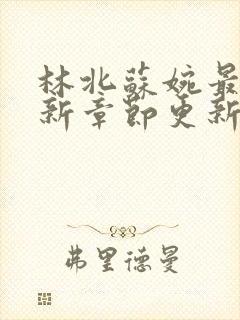 林北蘇婉最
新章節更新
弗里德曼